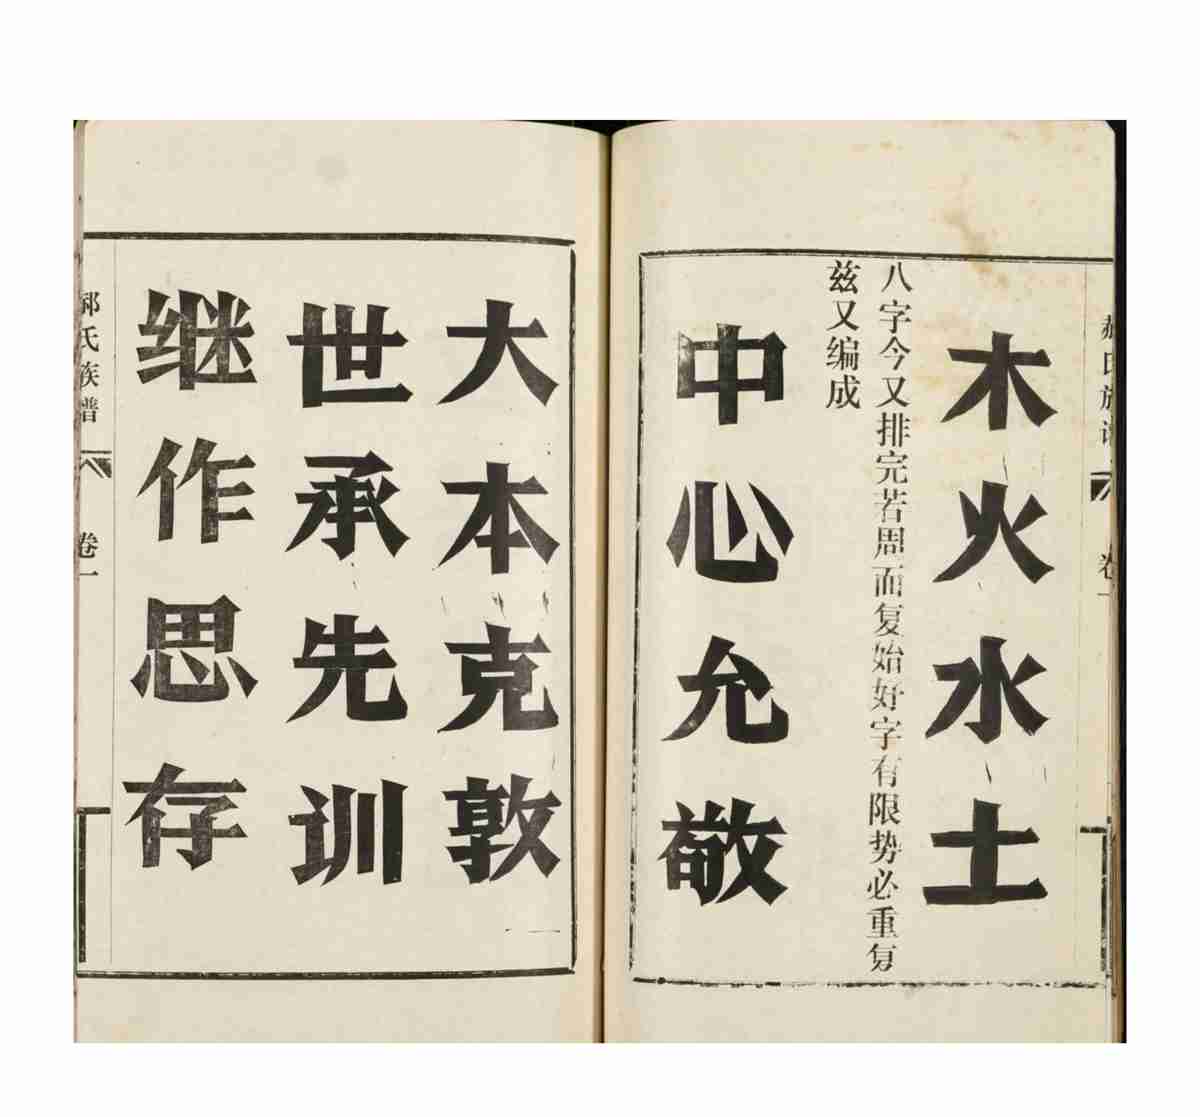 郝氏族谱 卷一
木火水土
八字今又排完若周而复始好字有限势必重复
兹又编成
中心允敬
大本克敦
世承先训
继作思存
郝氏族谱 卷一